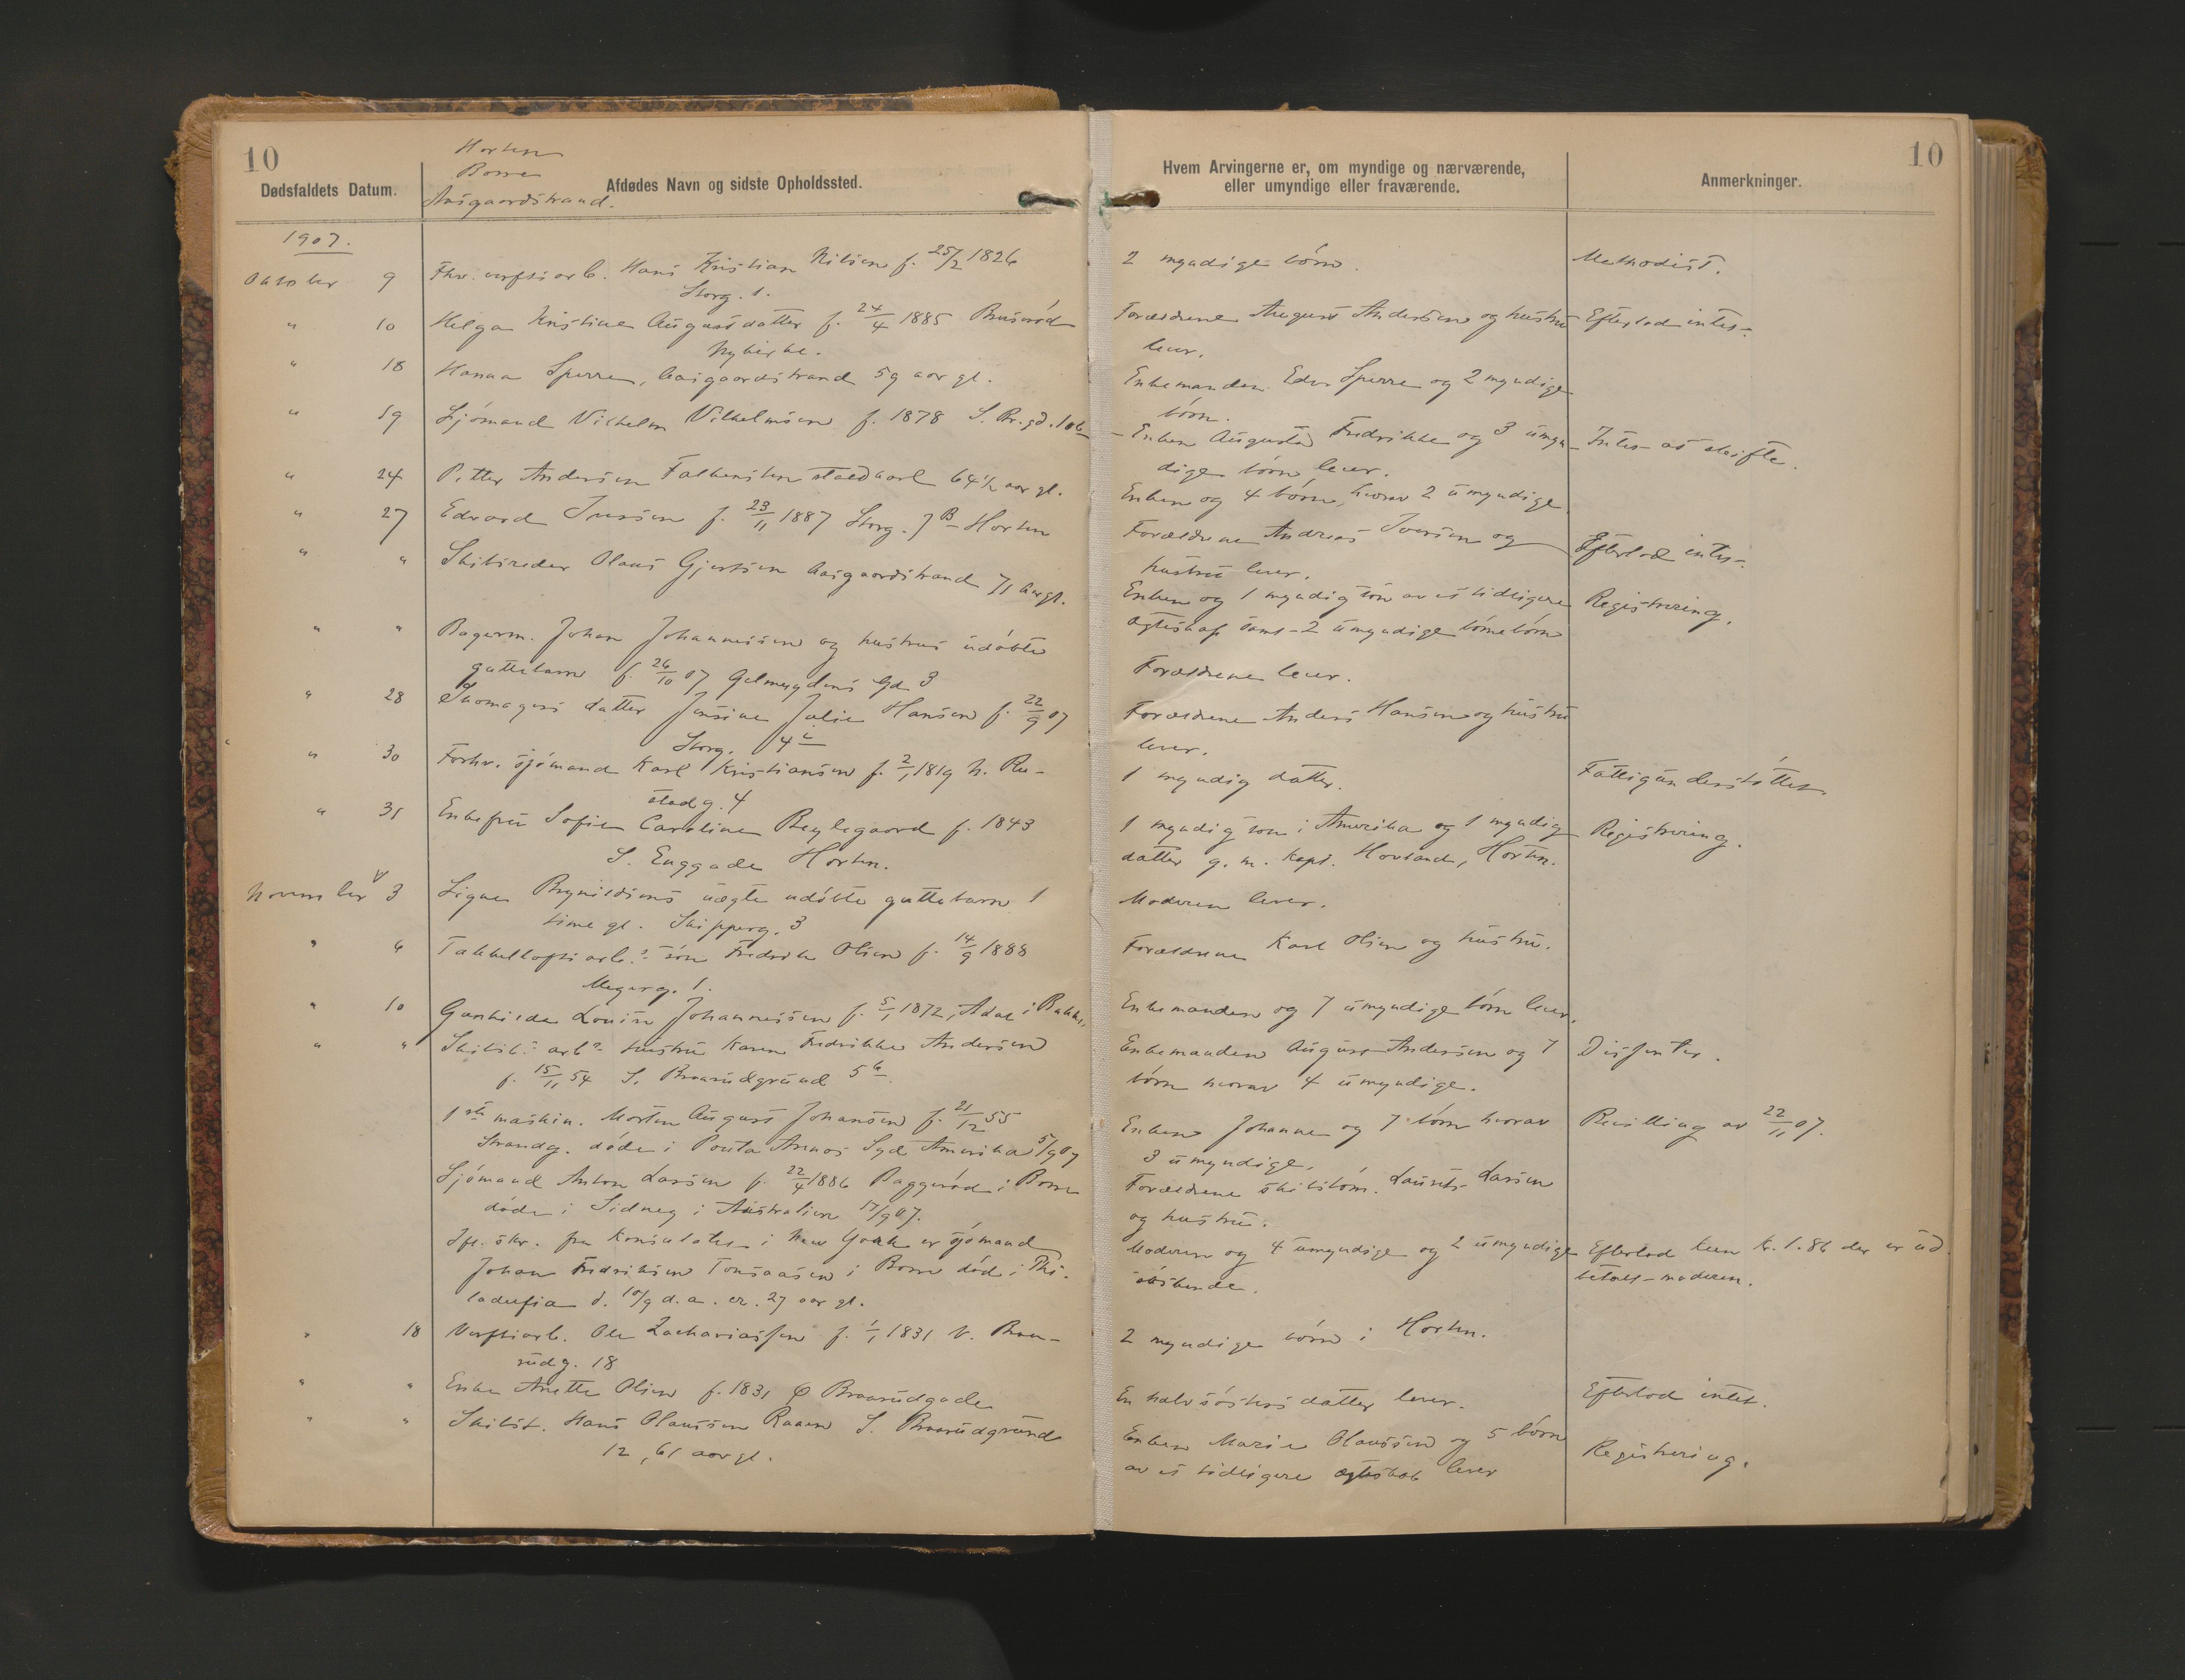 10
Horten
Borre
Aasgaardstrand.
Dødsfaldets Datum.
Afdødes Navn og sidste Opholdssted.
1907.
Oktober 9 Fhv. verftsarb. Hans Kristian Nilsen f. 25/2 1826
Storg. 1.
" 10 Helga Kristine Augustdatter f. 24/4 1885 Bruserød
Nykirke.
" 18 Hanna Sperre, Aasgaardstrand 59 aar gl.
" 19 Sjómand Vilhelm Vilhelmsen f. 1878 S. Br.gd. 10b
" 24 Petter Andersen Falkensten staldkarl 64 1/2 aar gl.
" 27 Edvard Iversen f. 23/11 1887 Storg. 7B Horten
" " Skibsreder Olaus Gjertsen Aasgaardstrand 71 aar gl.
" " Bagerm. Johan Johannessen og hustrus udóbte
guttebarn f. 26/10 07 gd. 3
" 28 Skomagers datter Jensine Julie Hansen f. 22/9 07
Storg. 4c
" 30 Forhv. sjómand Karl Kristiansen f. 2/1 1819 N. Ru-
stadg. 4
" 31 Enkefru Sofie Caroline Beylegaard f. 1843
S. Enggade Horten.
November 3 Signe Brynildsens uægte udóbte guttebarn 1
time gl. Skipperg. 3
" 6 Takkelloftsarb.s són Fredrik Olsen f. 14/9 1888
Meyerg. 1.
" 10 Gunhilda Louise Johannessen f. 5/1 1872, Adal i Bakke,
" " Skibsb. arb.s hustru Karen Fredrikke Andersen
f. 15/11 54 S. Braarudgrund 5b
1ste maskin. Morten August Johansen f. 21/12 55
Strandg. dóde i Punta Arenas Syd Amerika 5/9 07
Sjómand Anton Larsen f. 22/4 1886 Baggeród i Borre
dóde i Sidney i Australien 17/9 07.
Ifl. skr. fra Konsulatet i New York er sjómand
Johan Fredriksen Tonsaasen i Borre dód i Phi-
ladelfia d. 10/9 d.a. ca. 27 aar gl.
" 18 Verftsarb. Ole Zachariassen f. 1/1 1831 V. Braa-
rudg. 18
" " Enke Anette Olsen f. 1831 Ø Braarudgade
" " Skibst. Hans Olaussen Raaen S. Braarudgrund
12, 61 aar gl.
10
Hvem Arvingerne er, om myndige og nærværende,
eller umyndige eller fraværende.
Anmerkninger.
2 myndige bórn. Methodist.
Forældrene August Andersen og hustru Efterlod intet.
lever.
Enkemanden Edv. Sperre og 2 myndige
bórn.
Enken Augusta Fredrikke og 3 umyn- Intet at skifte.
dige bórn lever.
Enken og 4 bórn, hvorav 2 umyndige
Forældrene Andreas Iversen og Efterlod intet.
hustru lever.
Enken og 1 myndig són av et tidligere Registrering.
ægteskap samt 2 umyndige bórnebórn
Forældrene lever.
Forældrene Anders Hansen og hustru
lever.
1 myndig datter. Fattigunderstóttet.
1 myndig són i Amerika og 1 myndig Registrering.
datter g. m. kapt. Hovland, Horten.
Moderen lever.
Forældrene Karl Olsen og hustru.
Enkemanden og 7 umyndige bórn lever.
Enkemanden August Andersen og 7 Dissenter.
bórn hvorav 4 umyndige.
Enken Johanne og 7 bórn hvorav Bevilling av 22/11 07.
3 umyndige.
Forældrene skibstóm. Laurits Larsen
og hustru.
Moderen og 4 umyndige og 2 umyndige Efterlod kun kr. 1.86 der er ud-
sóskende. betalt moderen.
2 myndige bórn i Horten.
En halvsósters datter lever. Efterlod intet.
Enken Marie Olaussen og 5 bórn Registrering.
av et tidligere ægteskab lever